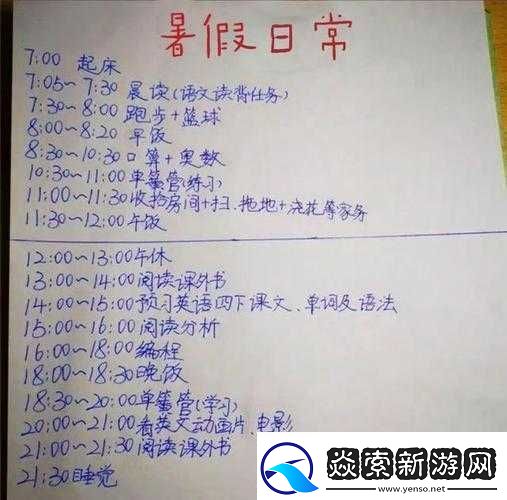 暑假日常
7:00 起床
7:05~7:30 晨读(语文读背任务)
7:30~8:00 跑步+篮球
8:00~8:20 早饭
8:30~10:30 口算+奥数
10:30~11:00 单簧管(练习)
11:00~11:30 收拾房间+扫、拖地+浇花等家务
11:30~12:00 午饭
12:00~13:00 午休
13:00~14:00 阅读课外书
14:00~15:00 预习英语四下课文、单词及语法
15:00~16:00 阅读分析
16:00~18:00 编程
18:00~18:30 晚饭
18:30~20:00 单簧管(学习)
20:00~21:00 看英文动画片、电影
21:00~21:30 阅读课外书
21:30 睡觉
焱索新游网
www.yenso.net